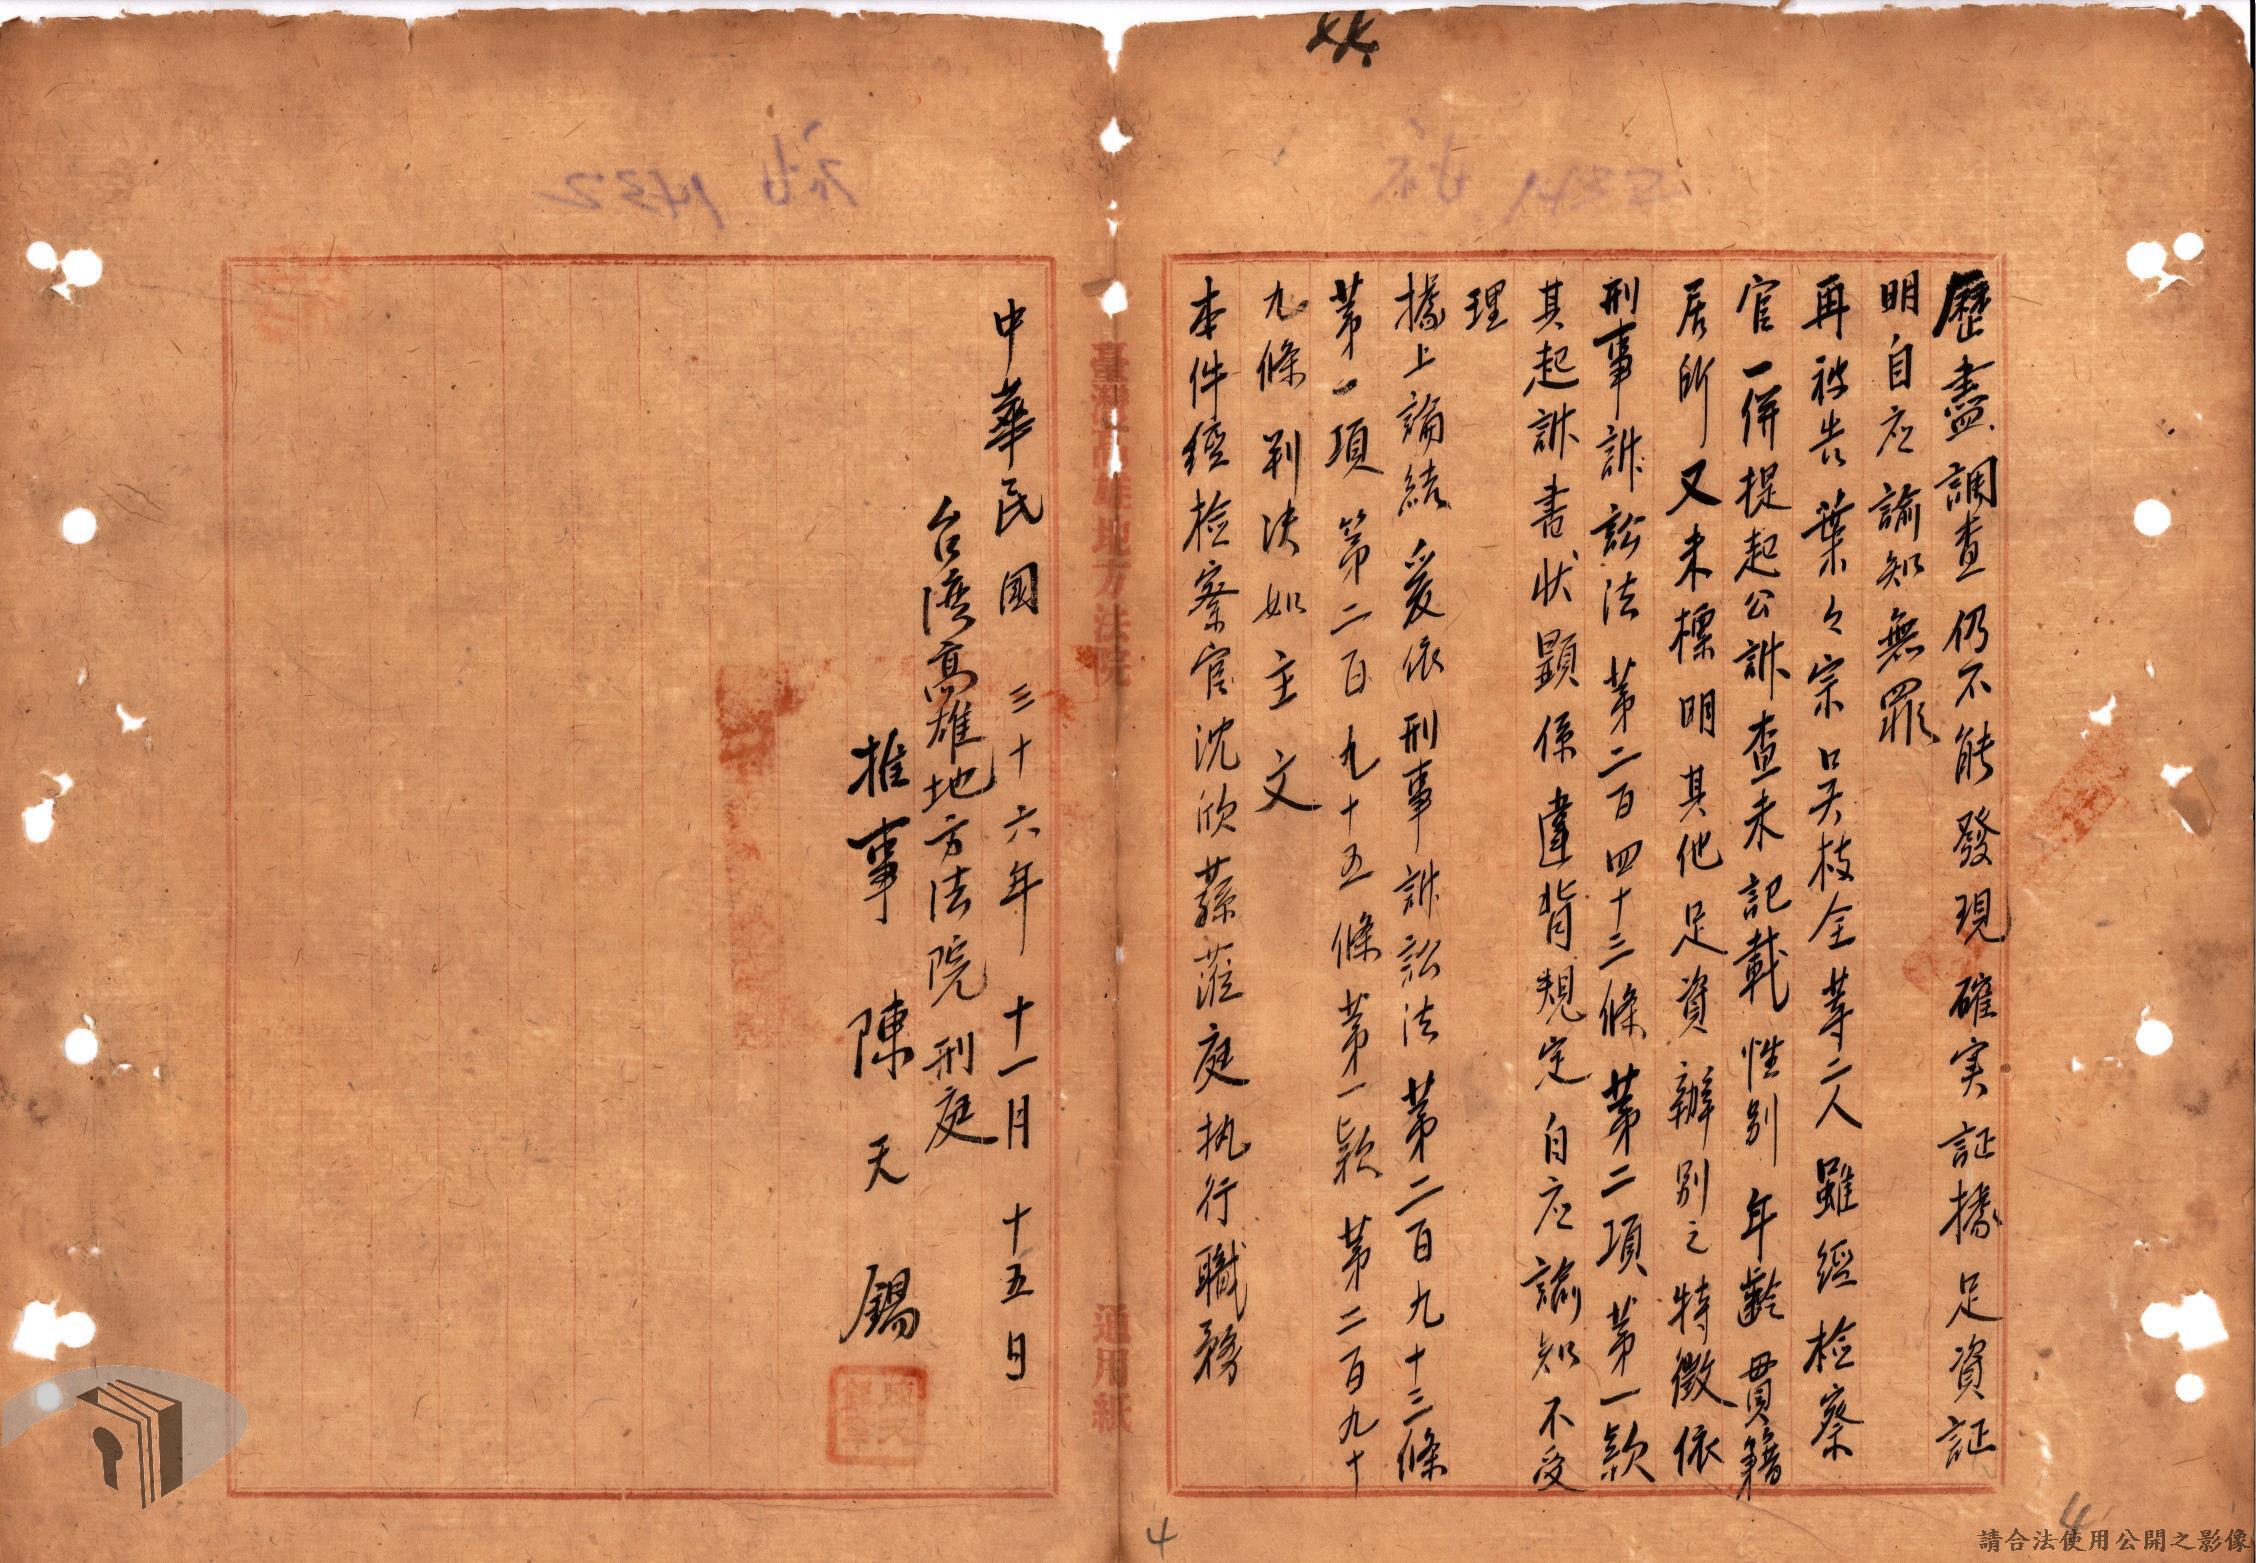 歷盡調查仍不能發現確实証據足資証
明自应諭知無罪
再被告葉々宗吳枝全等二人雖經检察
官一併提起公訴查未記載性别年齡貫籍
居所又未標明其他足資辦别之特徵依
刑事訴訟法第二百四十三條第二項第一款
其起訴書狀顯係違背規定自应諭知不受
理
據上論結爰依刑事訴訟法第二百九十三條
第一項第二百九十五條第一款第二百九十
九條判決如主文
本件經检察官沈欣蓀蒞庭执行職務
臺灣高雄地方法院
通用紙
中華民國三十六年十一月十五日
台湾高雄地方法院刑庭
推事陳天錫
4
4
請合法使用公開之影像